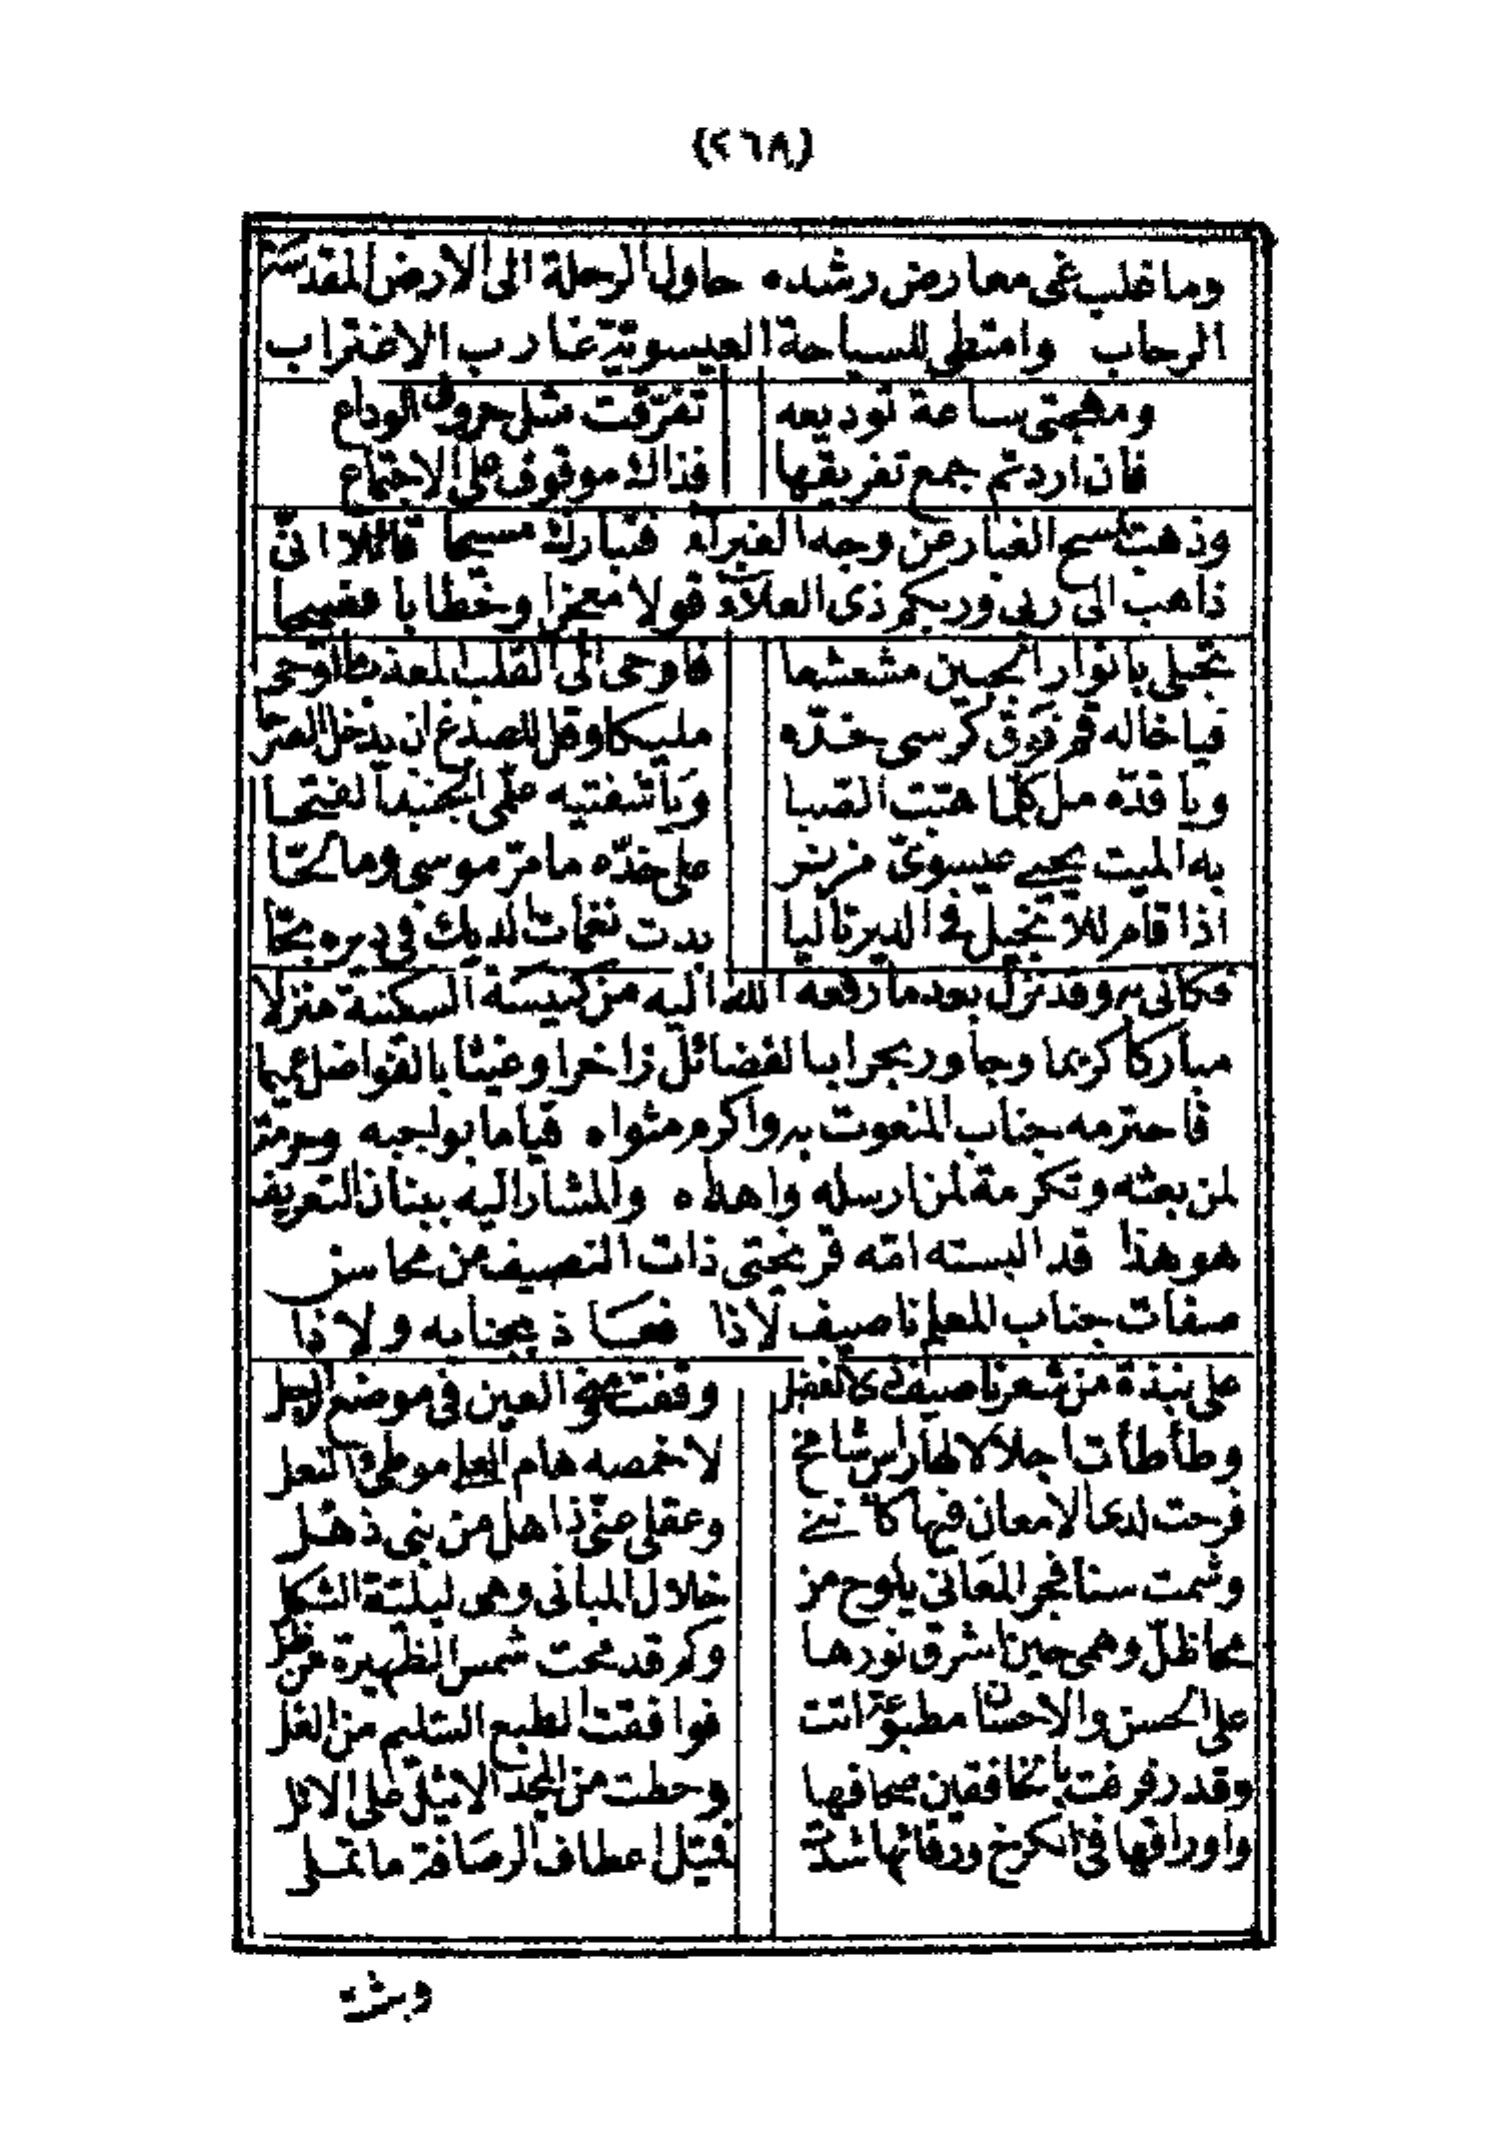 (٢٦٨)
وما غلب غى معارض رشده حاول الرحلة الى الارض المقدسة
الرحاب وامتطى للسياحة العيسوية غارب الاغتراب
ومهجتى ساعة توديعه تفرّقت مثل حروف الوداع
فان اردتم جمع تفريقها فذاك موقوف على الاجتماع
وذهب لمسح الغبار عن وجه الغبرآء فتبارك مسيحا قائلا انى
ذاهب الى ربى وربكم ذى العلاء قولا معجزا وخطابا فصيحا
تجلى بانوار الجبين مشعشعا فاوحى الى القلب المعذب ما اوحى
فيا خاله قم فوق كرسى خدّه مليكا وقل للصدغ ان يدخل الصرحا
ويا قدّه مل كلما هبت الصبا ويا شفتيه علمى الجنبذ الفتحا
به الميت يحيى عيسوىّ مزنر على خدّه ما مرّ موسى وما لحّا
اذا قام للانجيل فى الدير تاليا بدت نغمات الديك فى ديره بحّا
فكانى به وقد نزل بعد ما رفعه الله اليه من كنيسة السكينة منزلا
مباركا كريما وجاور بحرا بالفضائل زاخرا وغيثا بالفواضل عميما
فاحترمه بجناب المنعوت به واكرم مثواه قياما بواجبه وحرمة
لمن بعثه وتكرمة لمن ارسله واهداه والمشار اليه ببنان التعريف
هو هذا قد البسته امّه قريحتى ذات النصيف من محاسن
صفات جناب المعلم ناصيف لاذا فعاذ بجنابه ولاذا
على نبذة من شعر ناصيف ذى الفضل وقفت بمخ العين فى موضع الرجل
وطأطأت اجلالا لها راس شامخ لاخمصه هام العلى موطئ النعل
فرحت لدى الامعان فيها كاننى وعقلى عنّى ذاهل من بنى ذهل
وشمت سنا فجر المعانى يلوح من خلال المبانى وهى ليلية الشكل
محا ظلّ وهمى حين اشرق نورها وكم قد محت شمس الظهيرة من ظل
على الحسن والاحسان مطبوعة اتت فوافقت الطبع السليم من الغل
وقد رفرفت بالخافقين صحافها وحطت من المجد الاثيل على الاثل
واوراقها فى الكرخ ورقائها شدت فتيل اعطاف الرصافة ما تملى
وبثت